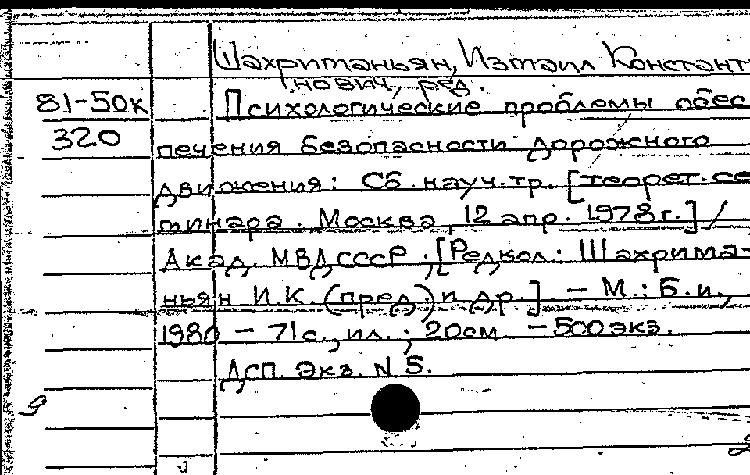 Шахриманьян, Измаил Констант
нович, ред.
81-50к Психологические проблемы обес
320 печения безопасности дорожного
движения: Сб. науч. тр. [теорет. се
минара. Москва, 12 апр. 1978 г.] /
Акад. МВД СССР ; [Редкол.: Шахрима-
ньян И.К. (пред.) и др.] — М.: Б.и.,
1980 — 71 с., ил. ; 20см — 500 экз.
ДСП. Экз. N 5.